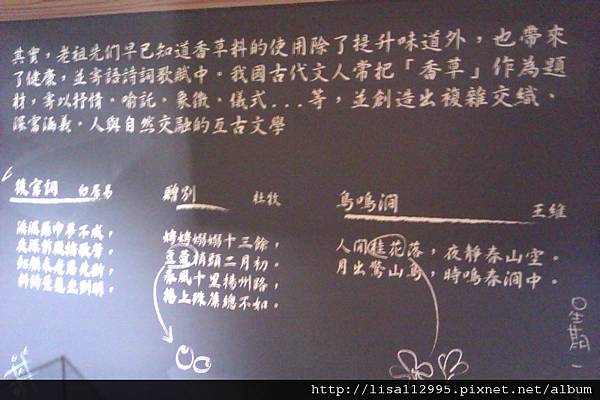 其實，老祖先们早已知道香草料的使用除了提升味道外，也帶來
了健康，並寄語詩詞歌賦中。我國古代文人常把「香草」作為題
材，考以抒情。喻託。象徵。儀式...等，並創造出複雜交織、
深富涵義。人與自然交融的亙古文學
後宮詞 白居易
淚濕羅巾夢不成，
夜深前殿按歌聲。
紅顏未老恩先斷，
斜倚薰籠坐到明。
贈別 杜牧
娉娉嫋嫋十三餘，
荳蔻梢頭二月初。
春風十里揚州路，
捲上珠簾總不如。
鳥鳴澗 王維
人閒桂花落，夜靜春山空。
月出驚山鳥，時鳴春澗中。
星期一
http://lisa112995.pixnet.net/album